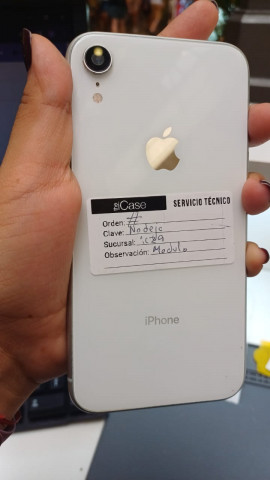 Case
SERVICIO TÉCNICO
Orden: #
Clave:
Sucursal:
Observación: Modulo
iPhone